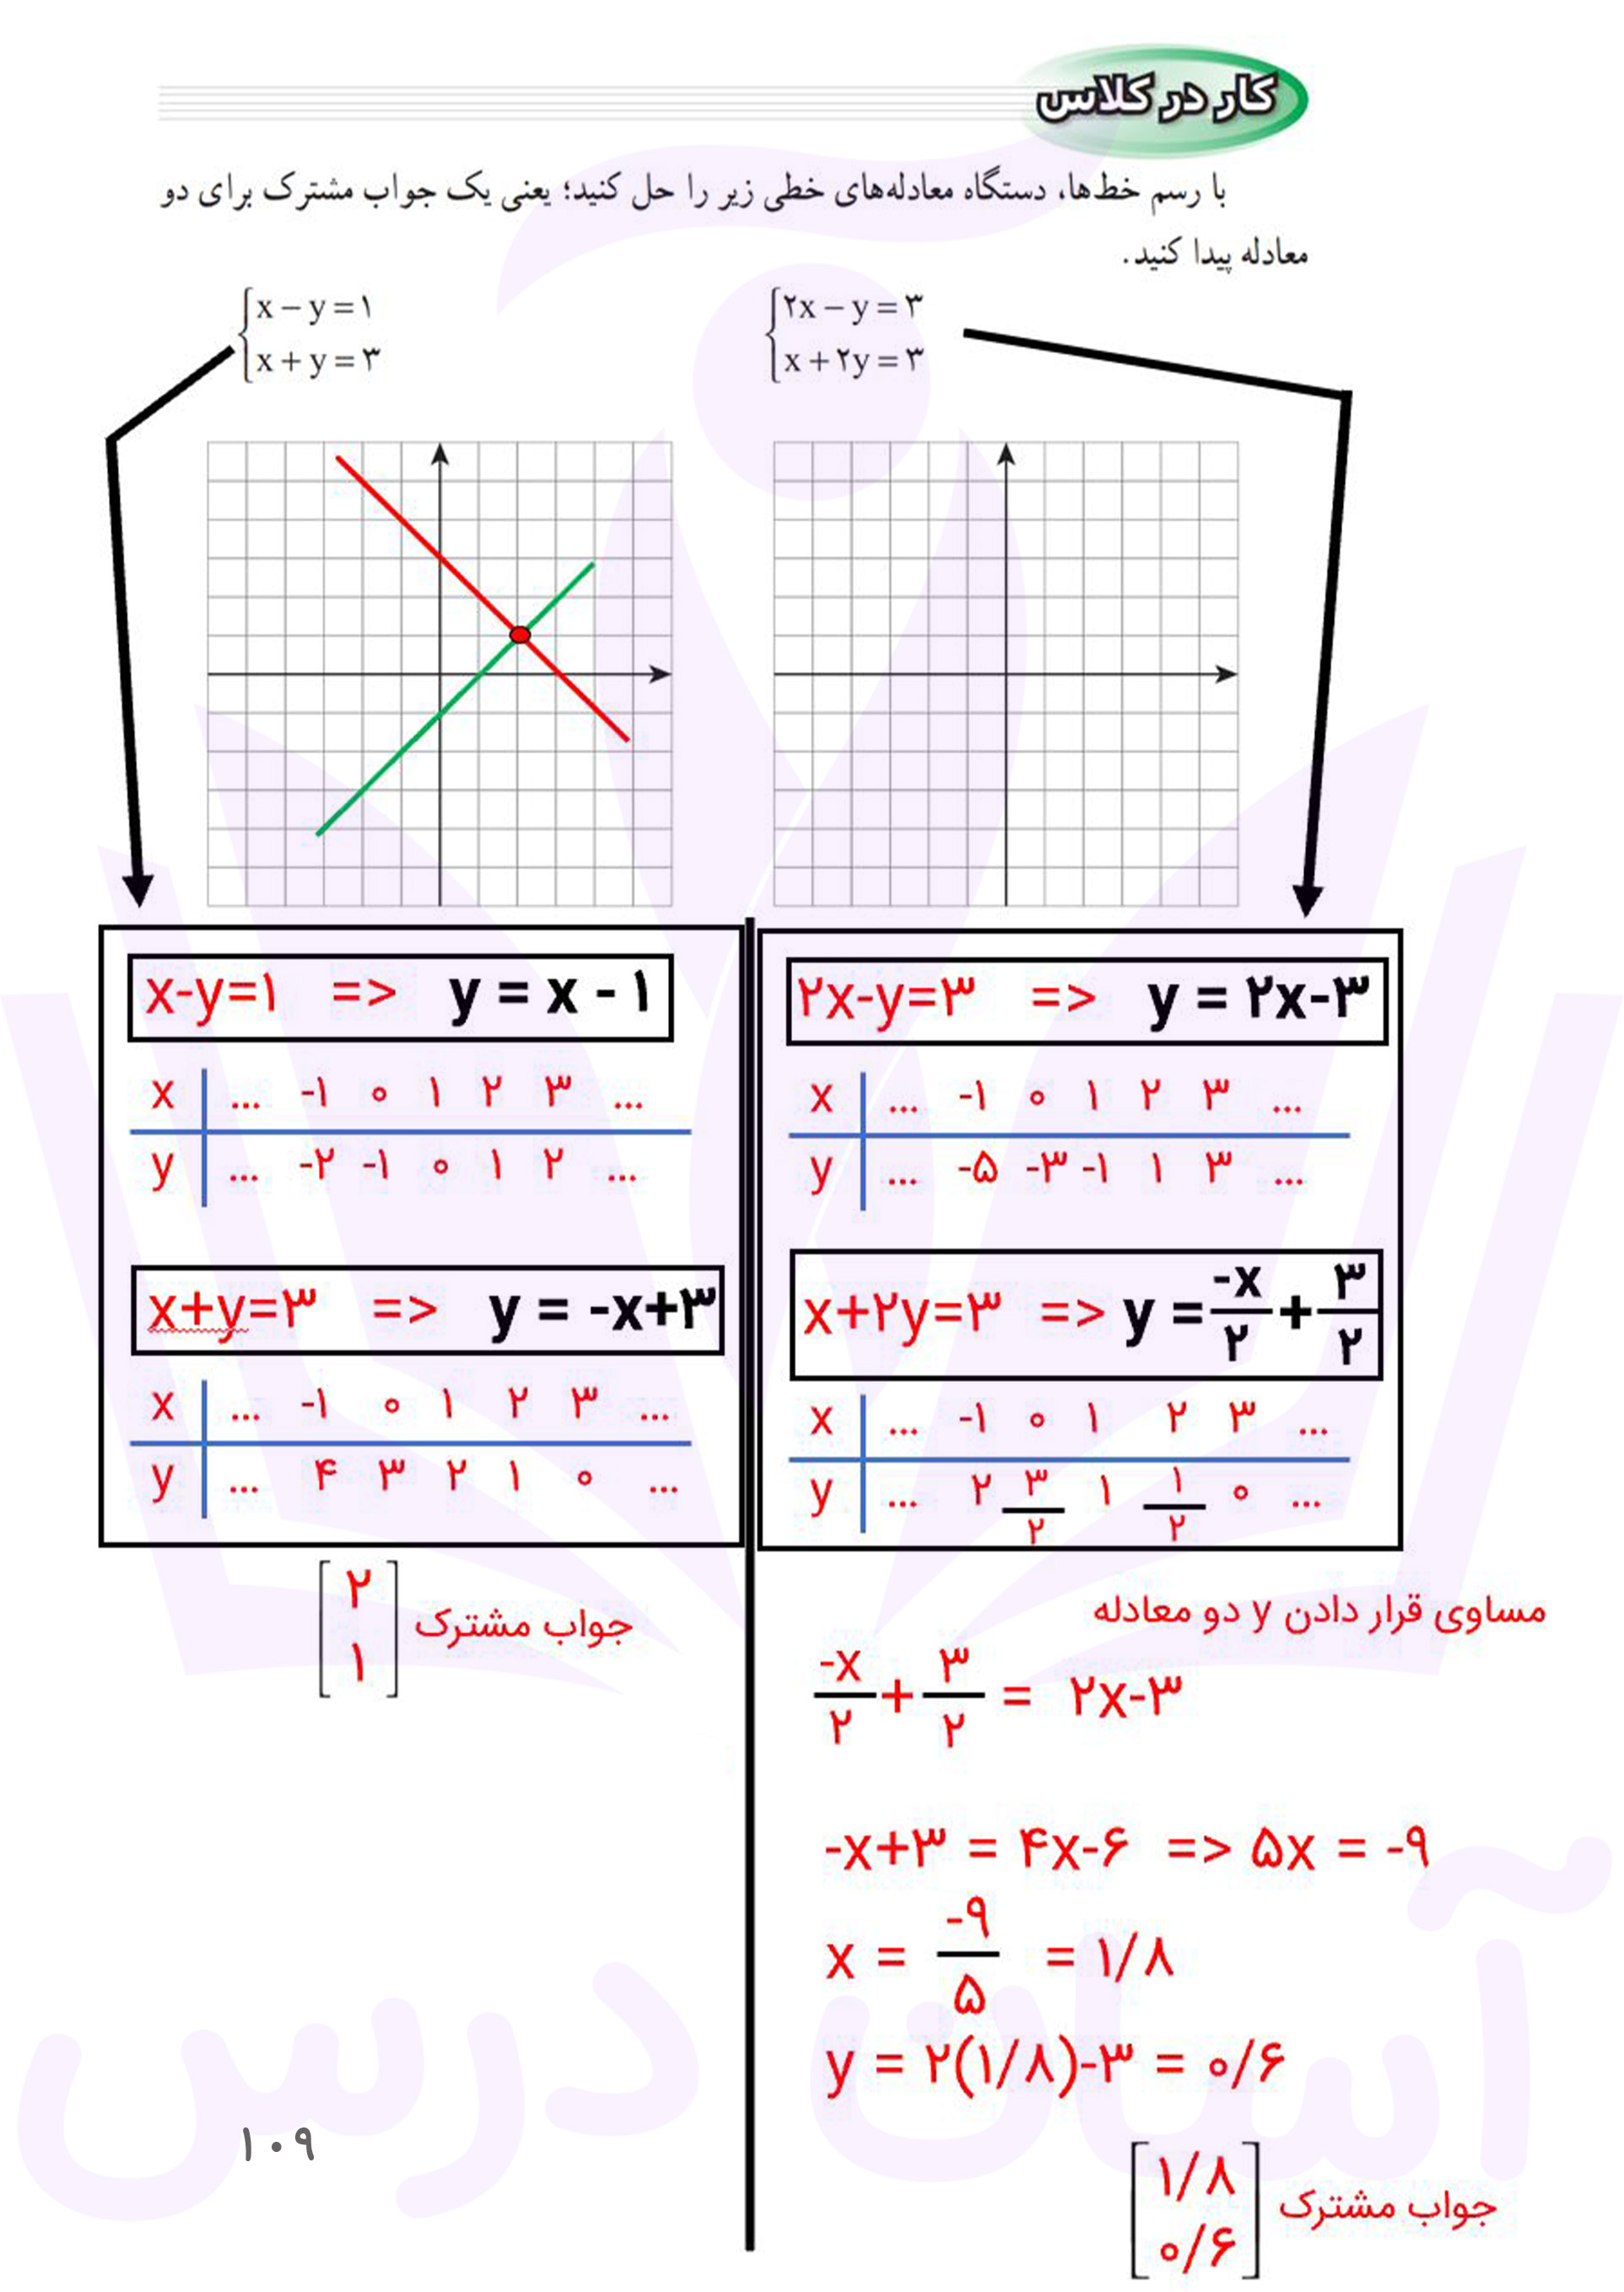 کار در کلاس
با رسم خط‌ها، دستگاه معادله‌های خطی زیر را حل کنید؛ یعنی یک جواب مشترک برای دو
معادله پیدا کنید.
x – y = ۱
x + y = ۳
۲x – y = ۳
x + ۲y = ۳
x-y=۱ => y = x - ۱
x ... -۱ ۰ ۱ ۲ ۳ ...
y ... -۲ -۱ ۰ ۱ ۲ ...
x+y=۳ => y = -x+۳
x ... -۱ ۰ ۱ ۲ ۳ ...
y ... ۴ ۳ ۲ ۱ ۰ ...
جواب مشترک [۲ ۱]
۲x-y=۳ => y = ۲x-۳
x ... -۱ ۰ ۱ ۲ ۳ ...
y ... -۵ -۳ -۱ ۱ ۳ ...
x+۲y=۳ => y = -x/۲ + ۳/۲
x ... -۱ ۰ ۱ ۲ ۳ ...
y ... ۲ ۳/۲ ۱ ۱/۲ ۰ ...
مساوی قرار دادن y دو معادله
-x/۲ + ۳/۲ = ۲x-۳
-x+۳ = ۴x-۶ => ۵x = -۹
x = -۹/۵ = ۱/۸
y = ۲(۱/۸)-۳ = ۰/۶
جواب مشترک [۱/۸ ۰/۶]
آسان درس
۱۰۹